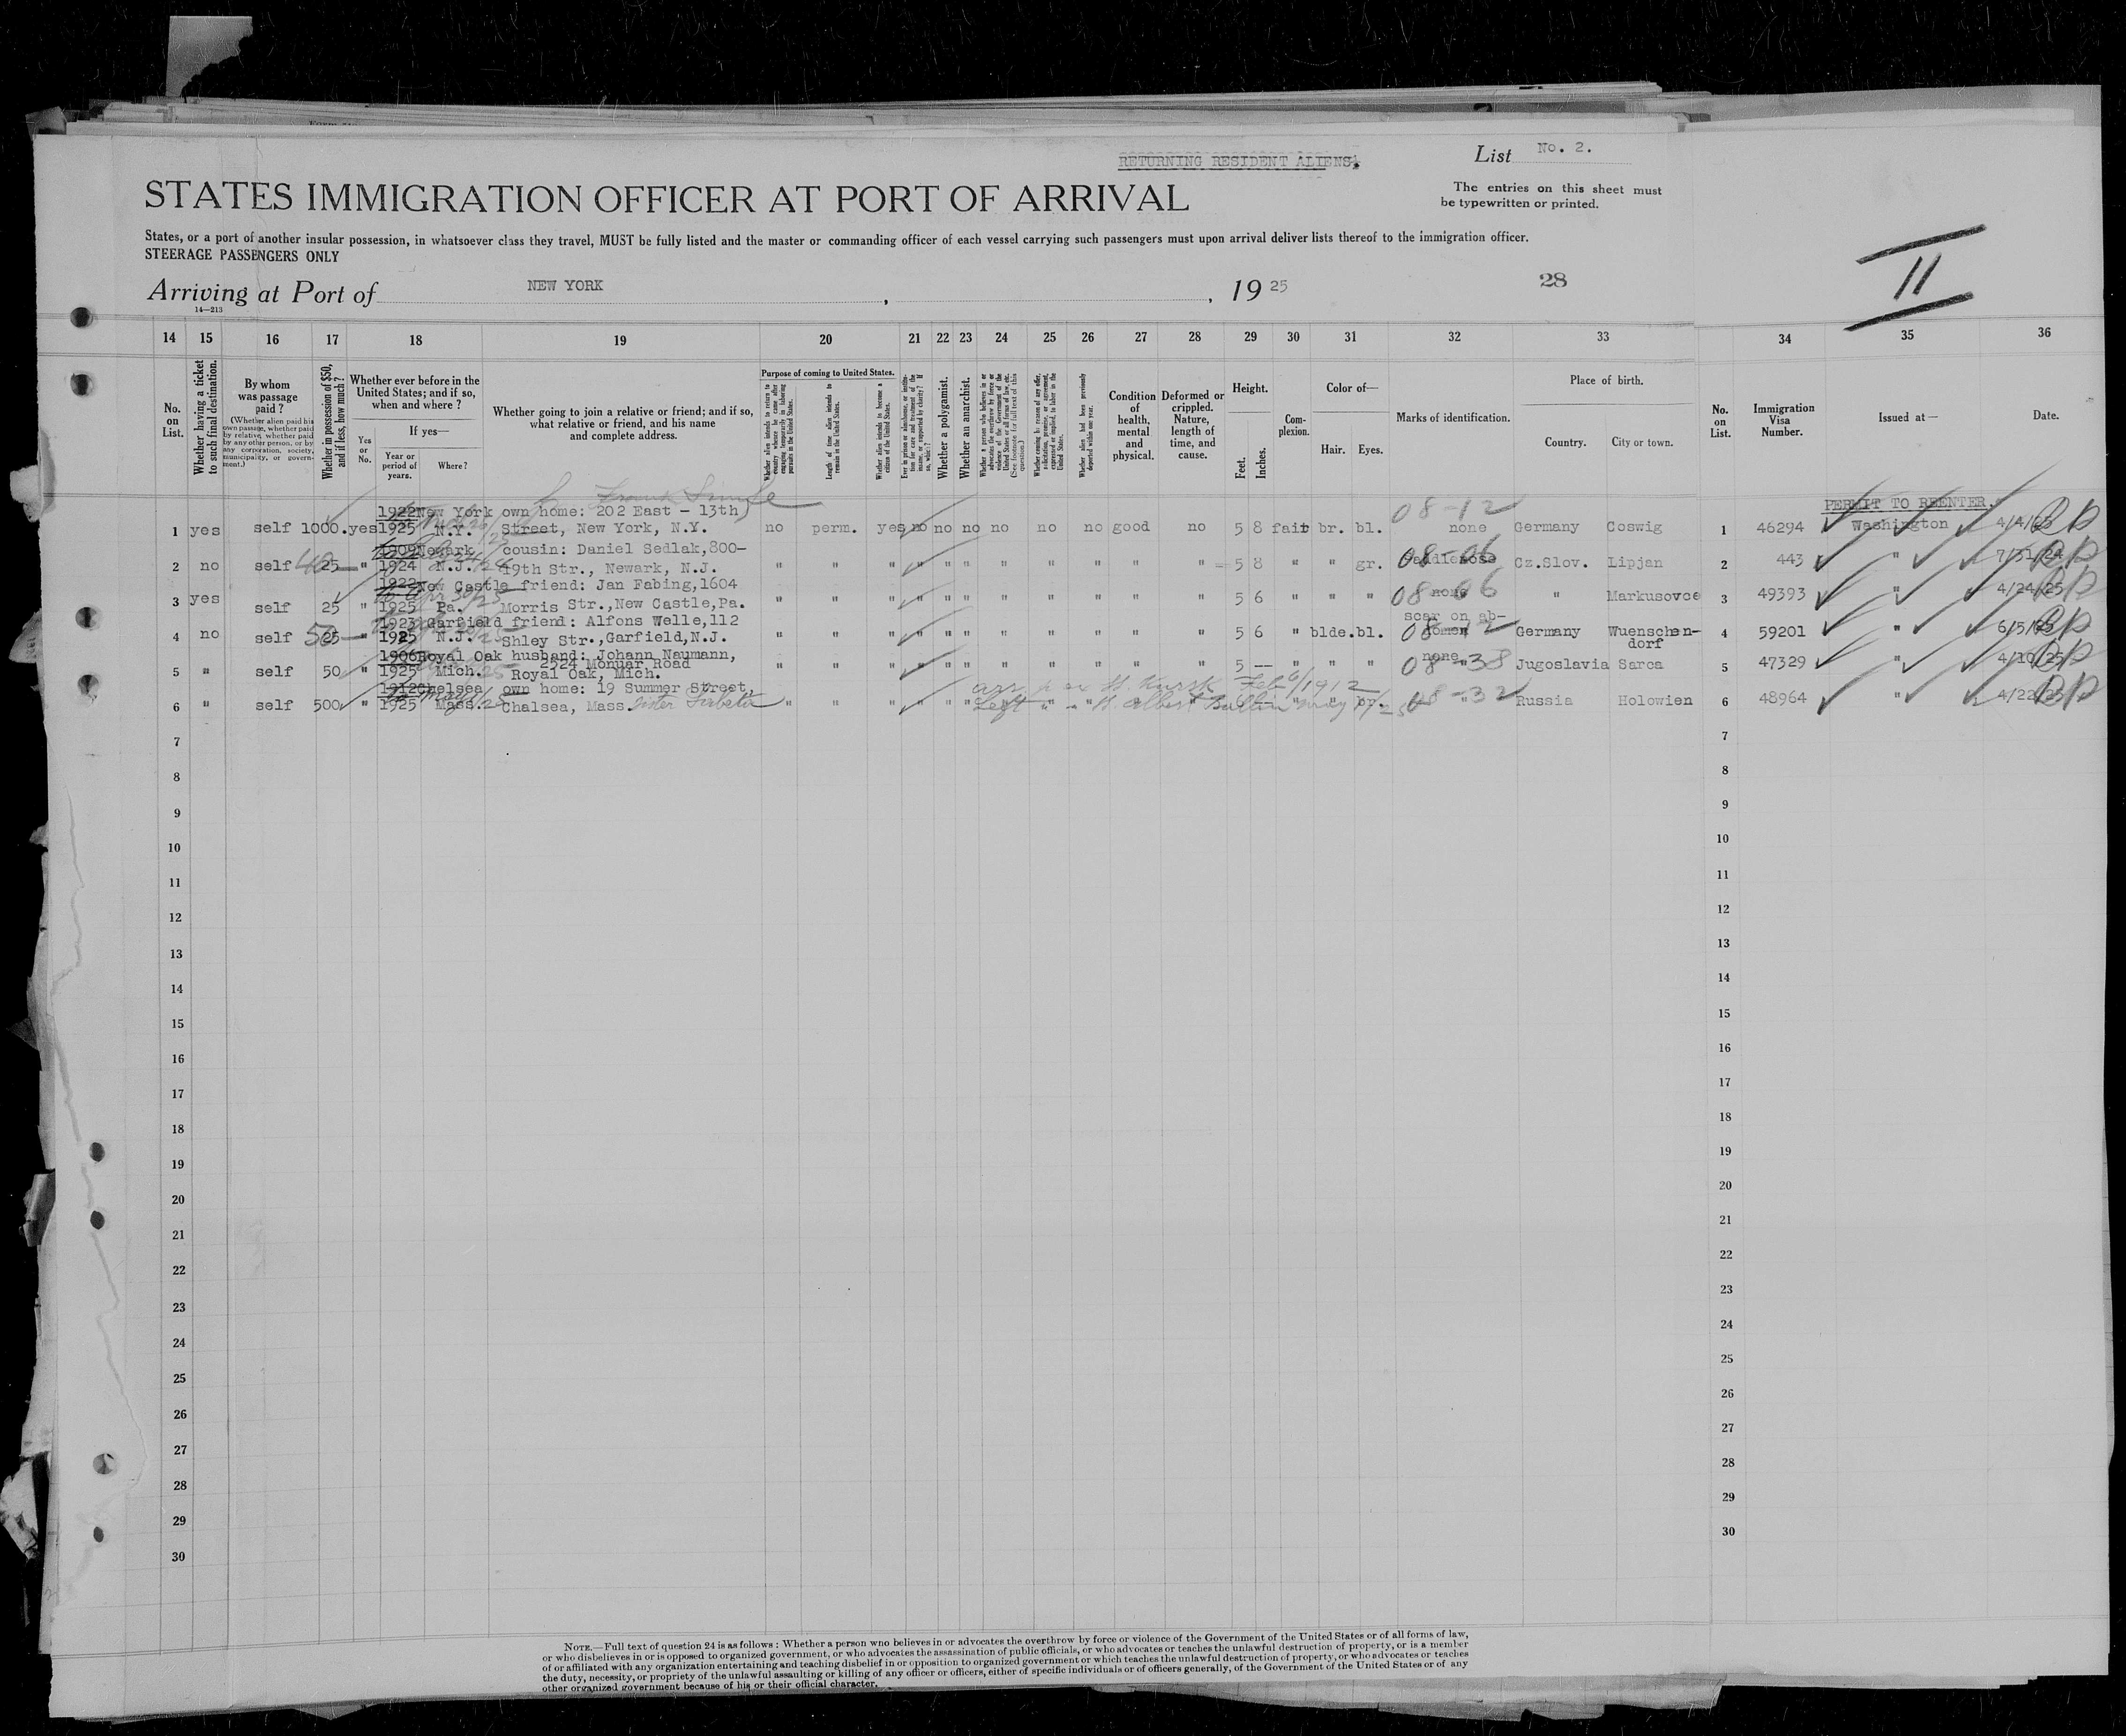 RETURNING RESIDENT ALIENS.
List No. 2.
STATES IMMIGRATION OFFICER AT PORT OF ARRIVAL
The entries on this sheet must
be typewritten or printed.
States, or a port of another insular possession, in whatsoever class they travel, MUST be fully listed and the master or commanding officer of each vessel carrying such passengers must upon arrival deliver lists thereof to the immigration officer.
STEERAGE PASSENGERS ONLY
II
Arriving at Port of NEW YORK, , 19 25
28
14—213
14 15 16 17 18 19 20 21 22 23 24 25 26 27 28 29 30 31 32 33 34 35 36
No. on List.
Whether having a ticket to such final destination.
By whom was passage paid?
(Whether alien paid his own passage, whether paid by relative, whether paid by any other person, or by any corporation, society, municipality, or government.)
Whether in possession of $50, and if less, how much?
Whether ever before in the United States; and if so, when and where?
If yes—
Yes or No.
Year or period of years.
Where?
Whether going to join a relative or friend; and if so, what relative or friend, and his name and complete address.
Purpose of coming to United States.
Whether alien intends to return to country whence he came after engaging temporarily in laboring pursuits in the United States.
Length of time alien intends to remain in the United States.
Whether alien intends to become a citizen of the United States.
Ever in prison or almshouse, or institution for care and treatment of the insane, or supported by charity? If so, which?
Whether a polygamist.
Whether an anarchist.
Whether a person who believes in or advocates the overthrow by force or violence of the Government of the United States or all forms of law, etc. (See footnote for full text of this question.)
Whether coming by reason of any offer, solicitation, promise, or agreement, expressed or implied, to labor in the United States.
Whether alien had been previously deported within one year.
Condition of health, mental and physical.
Deformed or crippled. Nature, length of time, and cause.
Height.
Feet. Inches.
Complexion.
Color of—
Hair. Eyes.
Marks of identification.
Place of birth.
Country. City or town.
No. on List.
Immigration Visa Number.
Issued at—
Date.
Frank
PERMIT TO REENTER.
1922 New York own home: 202 East - 13th 08-12
1 yes self 1000. yes 1925 N.Y. Street, New York, N.Y. no perm. yes no no no no no no good no 5 8 fair br. bl. none Germany Coswig 1 46294 Washington 4/4/25
1909 Newark cousin: Daniel Sedlak,800- 08-06
2 no self 40 25 " 1924 N.J. 19th Str., Newark, N.J. " " " " " " " " " " " 5 8 " " gr. Cz.Slov. Lipjan 2 443 " 7/31/24
1922 New Castle friend: Jan Fabing,1604
3 yes self 25 " 1925 Pa. Morris Str.,New Castle,Pa. " " " " " " " " " " " 5 6 " " " none 08-06 " Markusovce 3 49393 " 4/24/25
1923 Garfield friend: Alfons Welle,112 scar on ab-
4 no self 50 25 " 1925 N.J. Shley Str.,Garfield,N.J. " " " " " " " " " " " 5 6 " blde. bl. domen 08-12 Germany Wuenschen-
dorf 4 59201 " 6/5/25
1906 Royal Oak husband: Johann Naumann,
2524 Monuar Road none
5 " self 50 " 1925 Mich. Royal Oak, Mich. " " " " " " " " " " " 5 — " " " 08-38 Jugoslavia Sarca 5 47329 " 4/10/25
1912 Chelsea own home: 19 Summer Street, arr Kursk Feb 6/1912
6 " self 500 " 1925 Mass. Chalsea, Mass. sister " " " " " Left " " Albert Ballin May 1/25 br. 08-32 " Russia Holowien 6 48964 " 4/22/25
7 7
8 8
9 9
10 10
11 11
12 12
13 13
14 14
15 15
16 16
17 17
18 18
19 19
20 20
21 21
22 22
23 23
24 24
25 25
26 26
27 27
28 28
29 29
30 30
NOTE.—Full text of question 24 is as follows: Whether a person who believes in or advocates the overthrow by force or violence of the Government of the United States or of all forms of law,
or who disbelieves in or is opposed to organized government, or who advocates the assassination of public officials, or who advocates or teaches the unlawful destruction of property, or is a member
of or affiliated with any organization entertaining and teaching disbelief in or opposition to organized government or which teaches the unlawful destruction of property, or who advocates or teaches
the duty, necessity, or propriety of the unlawful assaulting or killing of any officer or officers, either of specific individuals or of officers generally, of the Government of the United States or of any
other organized government because of his or their official character.